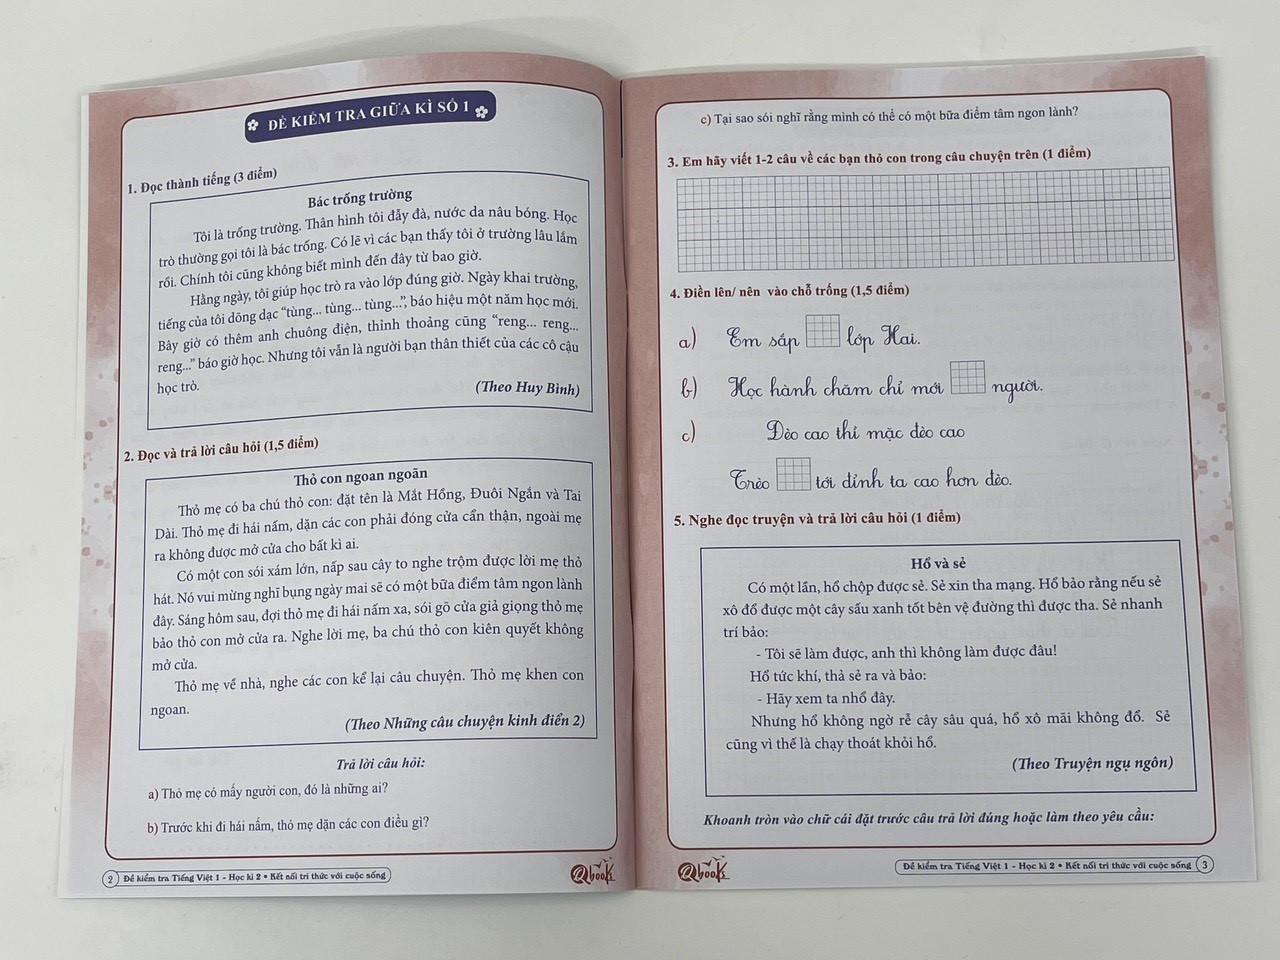 ĐỀ KIỂM TRA GIỮA KÌ SỐ 1
1. Đọc thành tiếng (3 điểm)
Bác trống trường
Tôi là trống trường. Thân hình tôi đẫy đà, nước da nâu bóng. Học
trò thường gọi tôi là bác trống. Có lẽ vì các bạn thấy tôi ở trường lâu lắm
rồi. Chính tôi cũng không biết mình đến đây từ bao giờ.
Hằng ngày, tôi giúp học trò ra vào lớp đúng giờ. Ngày khai trường,
tiếng của tôi dõng dạc “tùng... tùng... tùng...”, báo hiệu một năm học mới.
Bây giờ có thêm anh chuông điện, thỉnh thoảng cũng “reng... reng...
reng...” báo giờ học. Nhưng tôi vẫn là người bạn thân thiết của các cô cậu
học trò.
(Theo Huy Bình)
2. Đọc và trả lời câu hỏi (1,5 điểm)
Thỏ con ngoan ngoãn
Thỏ mẹ có ba chú thỏ con: đặt tên là Mắt Hồng, Đuôi Ngắn và Tai
Dài. Thỏ mẹ đi hái nấm, dặn các con phải đóng cửa cẩn thận, ngoài mẹ
ra không được mở cửa cho bất kì ai.
Có một con sói xám lớn, nấp sau cây to nghe trộm được lời mẹ thỏ
hát. Nó vui mừng nghĩ bụng ngày mai sẽ có một bữa điểm tâm ngon lành
đây. Sáng hôm sau, đợi thỏ mẹ đi hái nấm xa, sói gõ cửa giả giọng thỏ mẹ
bảo thỏ con mở cửa ra. Nghe lời mẹ, ba chú thỏ con kiên quyết không
mở cửa.
Thỏ mẹ về nhà, nghe các con kể lại câu chuyện. Thỏ mẹ khen con
ngoan.
(Theo Những câu chuyện kinh điển 2)
Trả lời câu hỏi:
a) Thỏ mẹ có mấy người con, đó là những ai?
b) Trước khi đi hái nấm, thỏ mẹ dặn các con điều gì?
2 Đề kiểm tra Tiếng Việt 1 - Học kì 2 • Kết nối tri thức với cuộc sống
Qbooks
c) Tại sao sói nghĩ rằng mình có thể có một bữa điểm tâm ngon lành?
3. Em hãy viết 1-2 câu về các bạn thỏ con trong câu chuyện trên (1 điểm)
4. Điền lên/ nên vào chỗ trống (1,5 điểm)
a) Em sắp lớp Hai.
b) Học hành chăm chỉ mới người.
c) Đèo cao thì mặc đèo cao
Trèo tới đỉnh ta cao hơn đèo.
5. Nghe đọc truyện và trả lời câu hỏi (1 điểm)
Hổ và sẻ
Có một lần, hổ chộp được sẻ. Sẻ xin tha mạng. Hổ bảo rằng nếu sẻ
xô đổ được một cây sấu xanh tốt bên vệ đường thì được tha. Sẻ nhanh
trí bảo:
- Tôi sẽ làm được, anh thì không làm được đâu!
Hổ tức khí, thả sẻ ra và bảo:
- Hãy xem ta nhổ đây.
Nhưng hổ không ngờ rễ cây sâu quá, hổ xô mãi không đổ. Sẻ
cũng vì thế là chạy thoát khỏi hổ.
(Theo Truyện ngụ ngôn)
Khoanh tròn vào chữ cái đặt trước câu trả lời đúng hoặc làm theo yêu cầu:
Qbooks
Đề kiểm tra Tiếng Việt 1 - Học kì 2 • Kết nối tri thức với cuộc sống 3